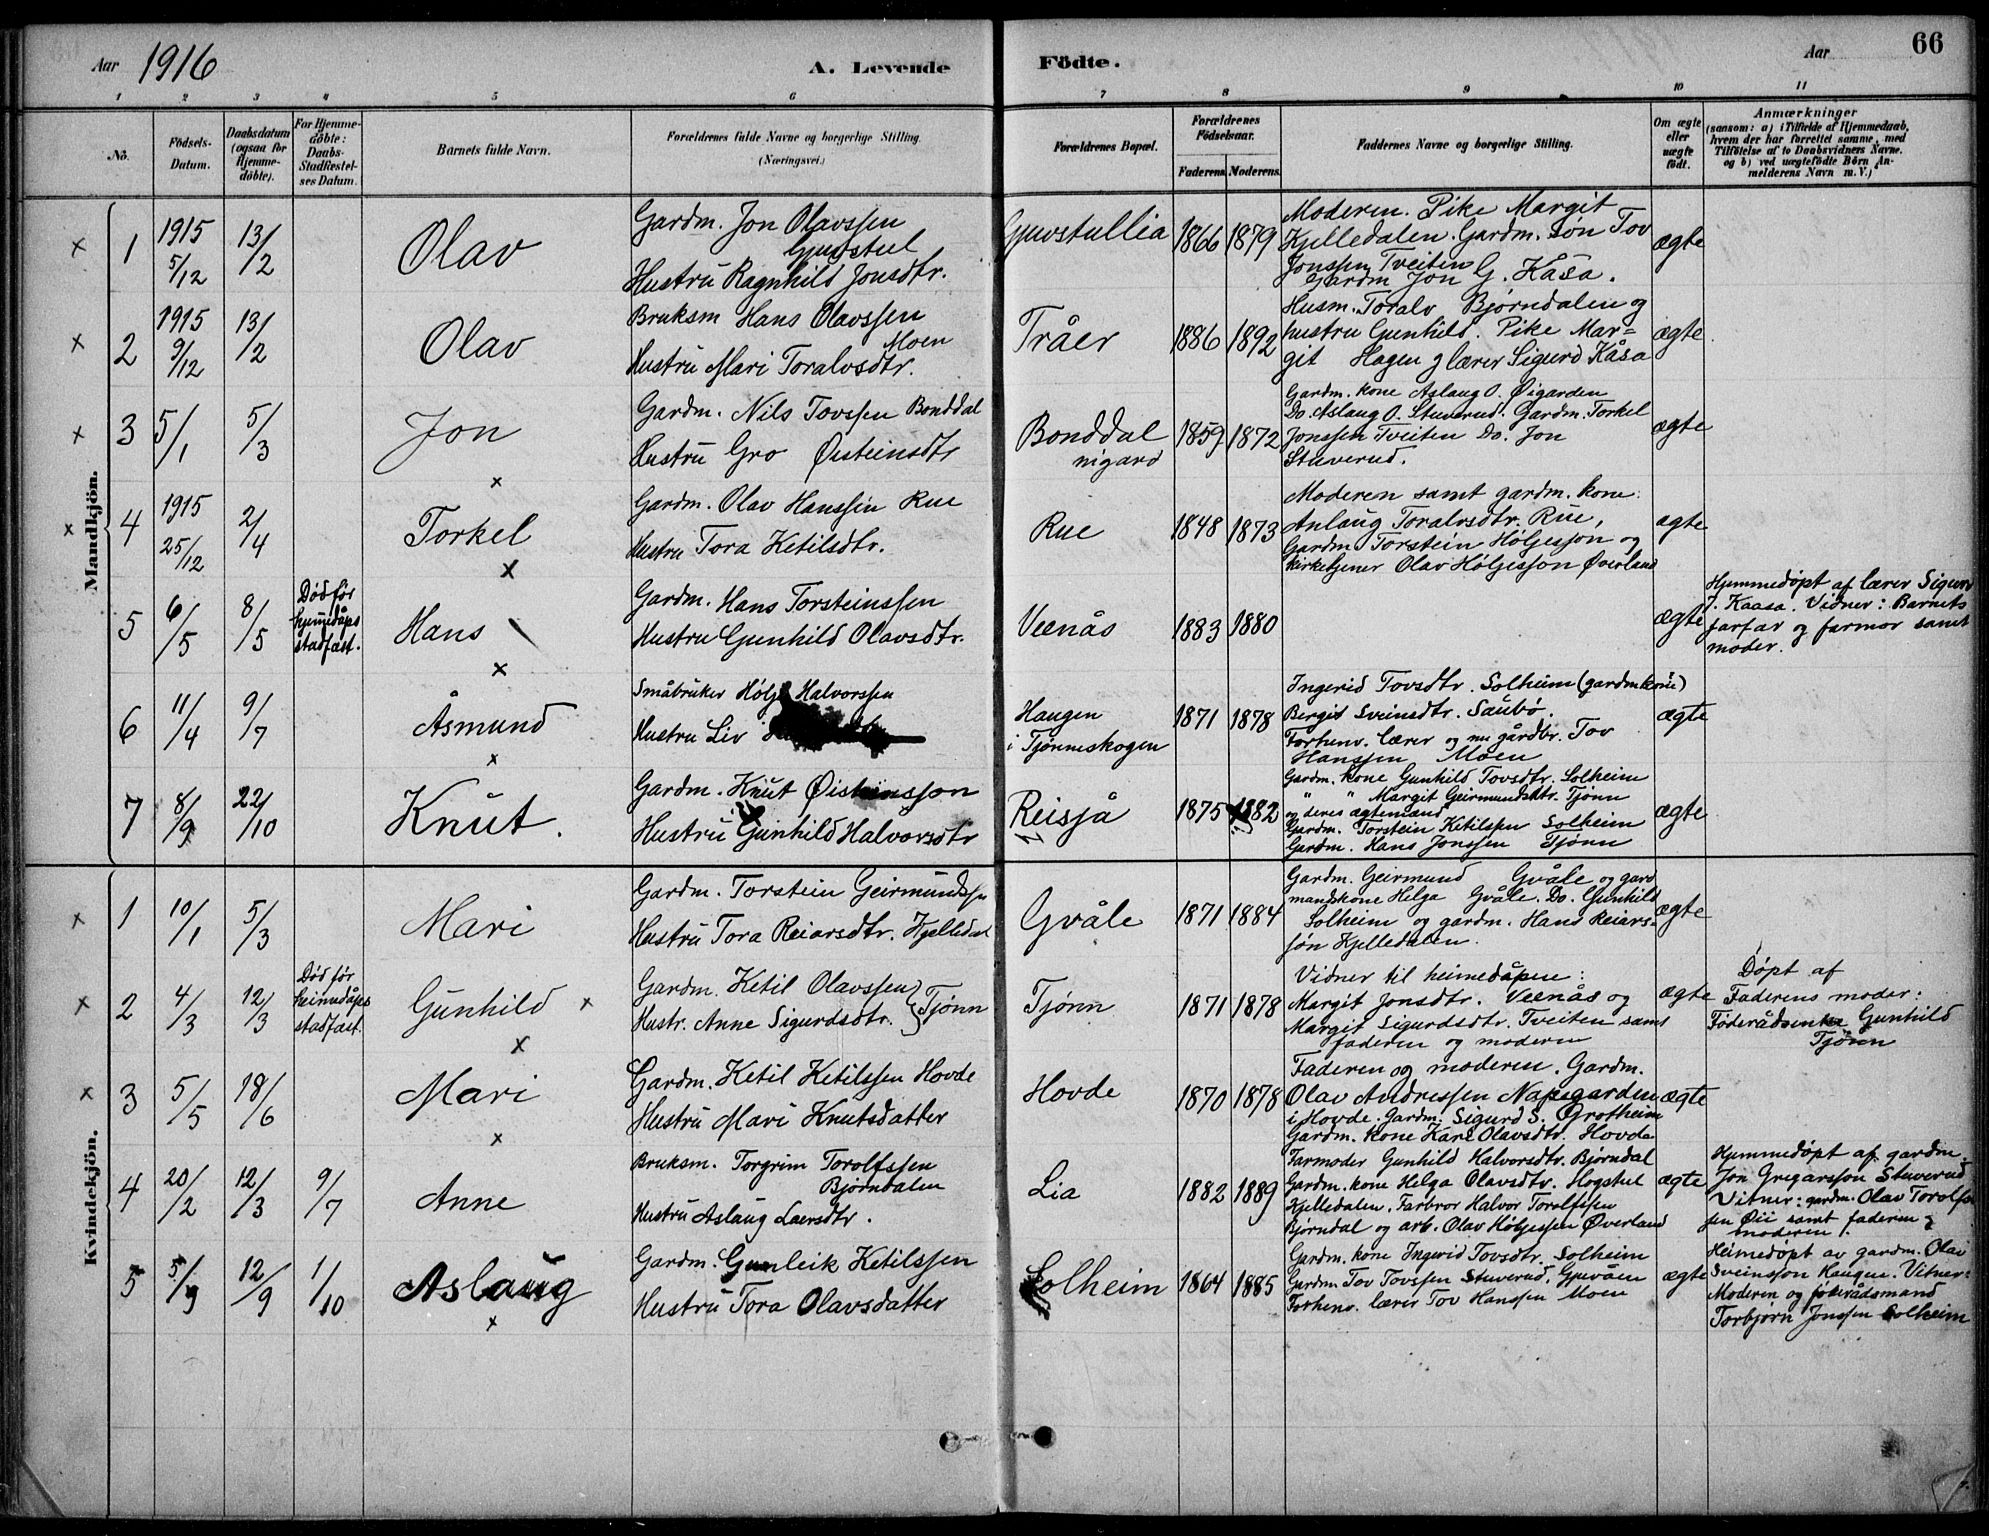 Aar 1916
A. Levende Födte.
Aar
66
1 2 3 4 5 6 7 8 9 10 11
No.
Födsels-Datum.
Daabsdatum (ogsaa for Hjemmedöbte).
For Hjemmedöbte: Daabs-Stadfæstelses Datum.
Barnets fulde Navn.
Forældrenes fulde Navne og borgerlige Stilling. (Næringsvei.)
Forældrenes Bopæl.
Forældrenes Födselsaar.
Faderens. Moderens.
Faddernes Navne og borgerlige Stilling.
Om ægte eller uægte födt.
Anmærkninger
(sansom: a) i Tilfælde af Hjemmedaab, hvem der har forrettet samme, med Tilföielse af to Daabsvidners Navne. og b) ved uægtefödte Börn Anmelderens Navn m. V.)
Mandkjön.
1 1915 5/12 13/2
Olav
Gardm. Jon Olavssen
Gjuvstul
Hustru Ragnhild Jonsdtr.
Gjuvstullia 1866 1879
Moderen. Pike Margit
Kjelledalen. Gardm. søn Tov
Jonssen Tveiten
Gardm Jon G. Kåsa.
ægte
2 1915 9/12 13/2
Olav
Bruksm Hans Olavssen
Moen
Hustru Mari Toralvsdtr.
Tråer 1886 1892
Husm. Toralv Bjørndalen og
hustru Gunhild. Pike Mar=
git Hagen og lærer Sigurd Kåsa
ægte
3 5/1 5/3
Jon
Gardm. Nils Tovssen Bonddal
Hustru Gro Øisteinsdtr
Bonddal
nigard
1859 1872
Gardm. kone Aslaug O. Øigarden
Do. Aslaug O. Stuverud. Gardm. Torkel
Jonssen Tveiten Do. Jon
Stuverud.
ægte
4 1915 25/12 2/4
Torkel
Gardm. Olav Hanssen Rue
Hustru Tora Ketilsdtr.
Rue 1848 1873
Moderen samt gardm. kone
Anlaug Toralvsdtr. Rue,
Gardm. Torstein Høljesson og
kirketjener Olav Høljesson Øverland
ægte
5 6/5 8/5
Død før
hjemedåps
stadfæst.
Hans
Gardm. Hans Torsteinssen
Hustru Gunhild Olavsdtr.
Veenås 1883 1880
ægte
Hjemmedøpt af lærer Sigurd
J. Kaasa. Vidner: Barnets
farfar og farmor samt
moder.
6 11/4 9/7
Åsmund
Småbruker Hølje Halvorssen
Hustru Liv
Haugen
i Tjønneskogen
1871 1878
Ingerid Tovsdtr. Solheim (gardmkone)
Bergit Sveinsdtr. Saubø.
Forhenv. lærer og nu gårdbr. Tov
Hanssen Moen
ægte
7 8/9 22/10
Knut.
Gardm. Knut Øisteinsson
Hustru Gunhild Halvorsdtr
Reisjå 1875 1882
Gardm. kone Gunhild Tovsdtr. Solheim
" " Margit Geirmundsdtr. Tjønn
og deres ægtemænd
Gardm. Torstein Ketilssen Solheim
Gardm. Hans Jonssen Tjønn
ægte
Kvindekjön.
1 10/1 5/3
Mari
Gardm. Torstein Geirmundssn
Hustru Tora Reiarsdtr. Kjelledal
Gvåle 1871 1884
Gardm. Geirmund Gvåle og gard
mandskone Helga Gvåle. Do. Gunhild
Solheim og gardm. Hans Reiars-
søn Kjelledalen.
ægte
2 4/3 12/3
Død før
heimedåps
stadfæst.
Gunhild
Gardm. Ketil Olavssen
Hustr. Anne Sigurdsdtr. } Tjønn
Tjønn 1871 1878
Vidner til heimedåpen:
Margit Jonsdtr. Veenås og
Margit Sigurdsdtr. Tveiten samt
faderen og moderen
ægte
Døpt af
Faderens moder:
Føderådsenke Gunhild
Tjønn
3 5/5 18/6
Mari
Gardm. Ketil Ketilssen Hovde
Hustru Mari Knutsdatter
Hovde 1870 1878
Faderen og moderen. Gardm.
Olav Andressen Napsgarden
i Hovde. Gardm. Sigurd S. Grotheim
Gardm. kone Kari Olavsdtr. Hovde
ægte
4 20/2 12/3 9/7
Anne
Bruksm. Torgrim Torolfssen
Bjørndalen
Hustru Aslaug Laersdtr.
Lia 1882 1889
Farmoder Gunhild Halvorsdtr. Bjørndal
Gardm. kone Helga Olavsdtr. Hogstul
Kjelledalen. Farbror Halvor Torolfssen
Bjørndal og arb. Olav Høljessen Øverland
ægte
Hjemmedøpt af gardm.
Jon Gregarsson Stuverud
Vitner: gardm. Olav Torolfs
sen Øii samt faderen og
moderen
5 5/9 12/9 1/10
Aslaug
Gardm. Gunleik Ketilssen
Hustru Tora Olavsdatter
Solheim 1864 1885
Gardm. kone Ingerid Tovsdtr. Solheim
Gardm Tov Tovssen Stuverud, Gjuvåen
Forhenv. lærer Tov Hanssen Moen
ægte
Heimedøpt av gardm. Olav
Sveinsson Haugen. Vitner:
Moderen og føderådsmand
Torbjørn Jonssen Solheim